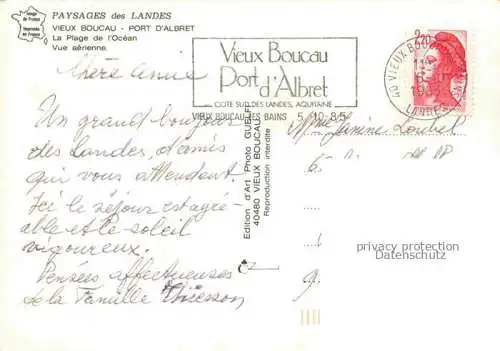 Image de France
Imprimée en France
PAYSAGES des LANDES
VIEUX BOUCAU - PORT D'ALBRET
La Plage de l'Océan
Vue aérienne.
Vieux Boucau
Port d'Albret
COTE SUD DES LANDES, AQUITAINE
VIEUX BOUCAU LES BAINS 5.10.85
40 VIEUX BOUCAU
LANDES
2,20
Chère amie
Un grand bonjour
des Landes, d'amis
qui vous attendent.
Ici le séjour est agré-
able et le soleil
vigoureux.
Pensées affectueuses
de la Famille
Edition d'Art Photo GUELFF
40480 VIEUX BOUCAU
Reproduction interdite
Janine
privacy protection
Datenschutz